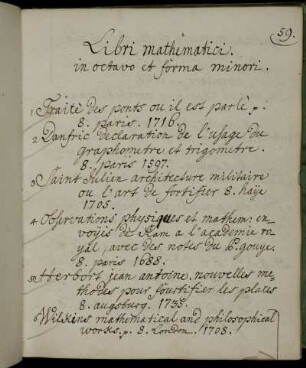 59.
Libri mathematici.
in octavo et forma minori.
1. Traité des ponts ou il est parlè p:
8. paris. 1716.
2. Danfric declaration de l'usage du
graphometre et trigometre.
8. paris 1597.
3. Saint Julien architecture militaire
ou l'art de fortifier 8. haÿe
1705.
4. Observations physiques et mathem: en
voyées de Siam a l'academie ro
yal, avec des notes du P. gouye.
8. paris 1688.
5. Herbort jean antoine, nouvelles me
thodes pour fourtifier les places
8. augsburg. 1735.
6. Wilkins mathematical and philosophical
works. p. 8. London. 1708.